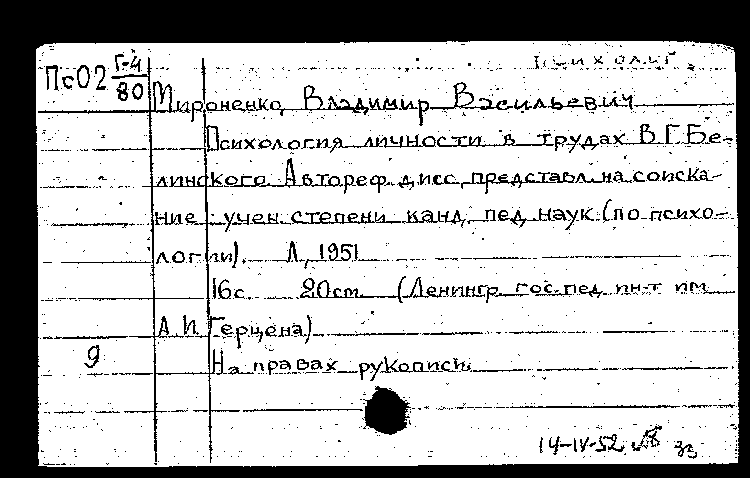 Психолог.
ПсО2 Г-4/80
Мироненко, Владимир Васильевич
Психология личности в трудах В.Г.Бе-
линского. Автореф. дисс., представл. на соиска-
ние учен. степени канд. пед. наук (по психо-
логии). Л., 1951
16с. 20cm. (Ленингр. гос. пед. ин-т им.
А.И. Герцена)
9 На правах рукописи.
14-IV-52